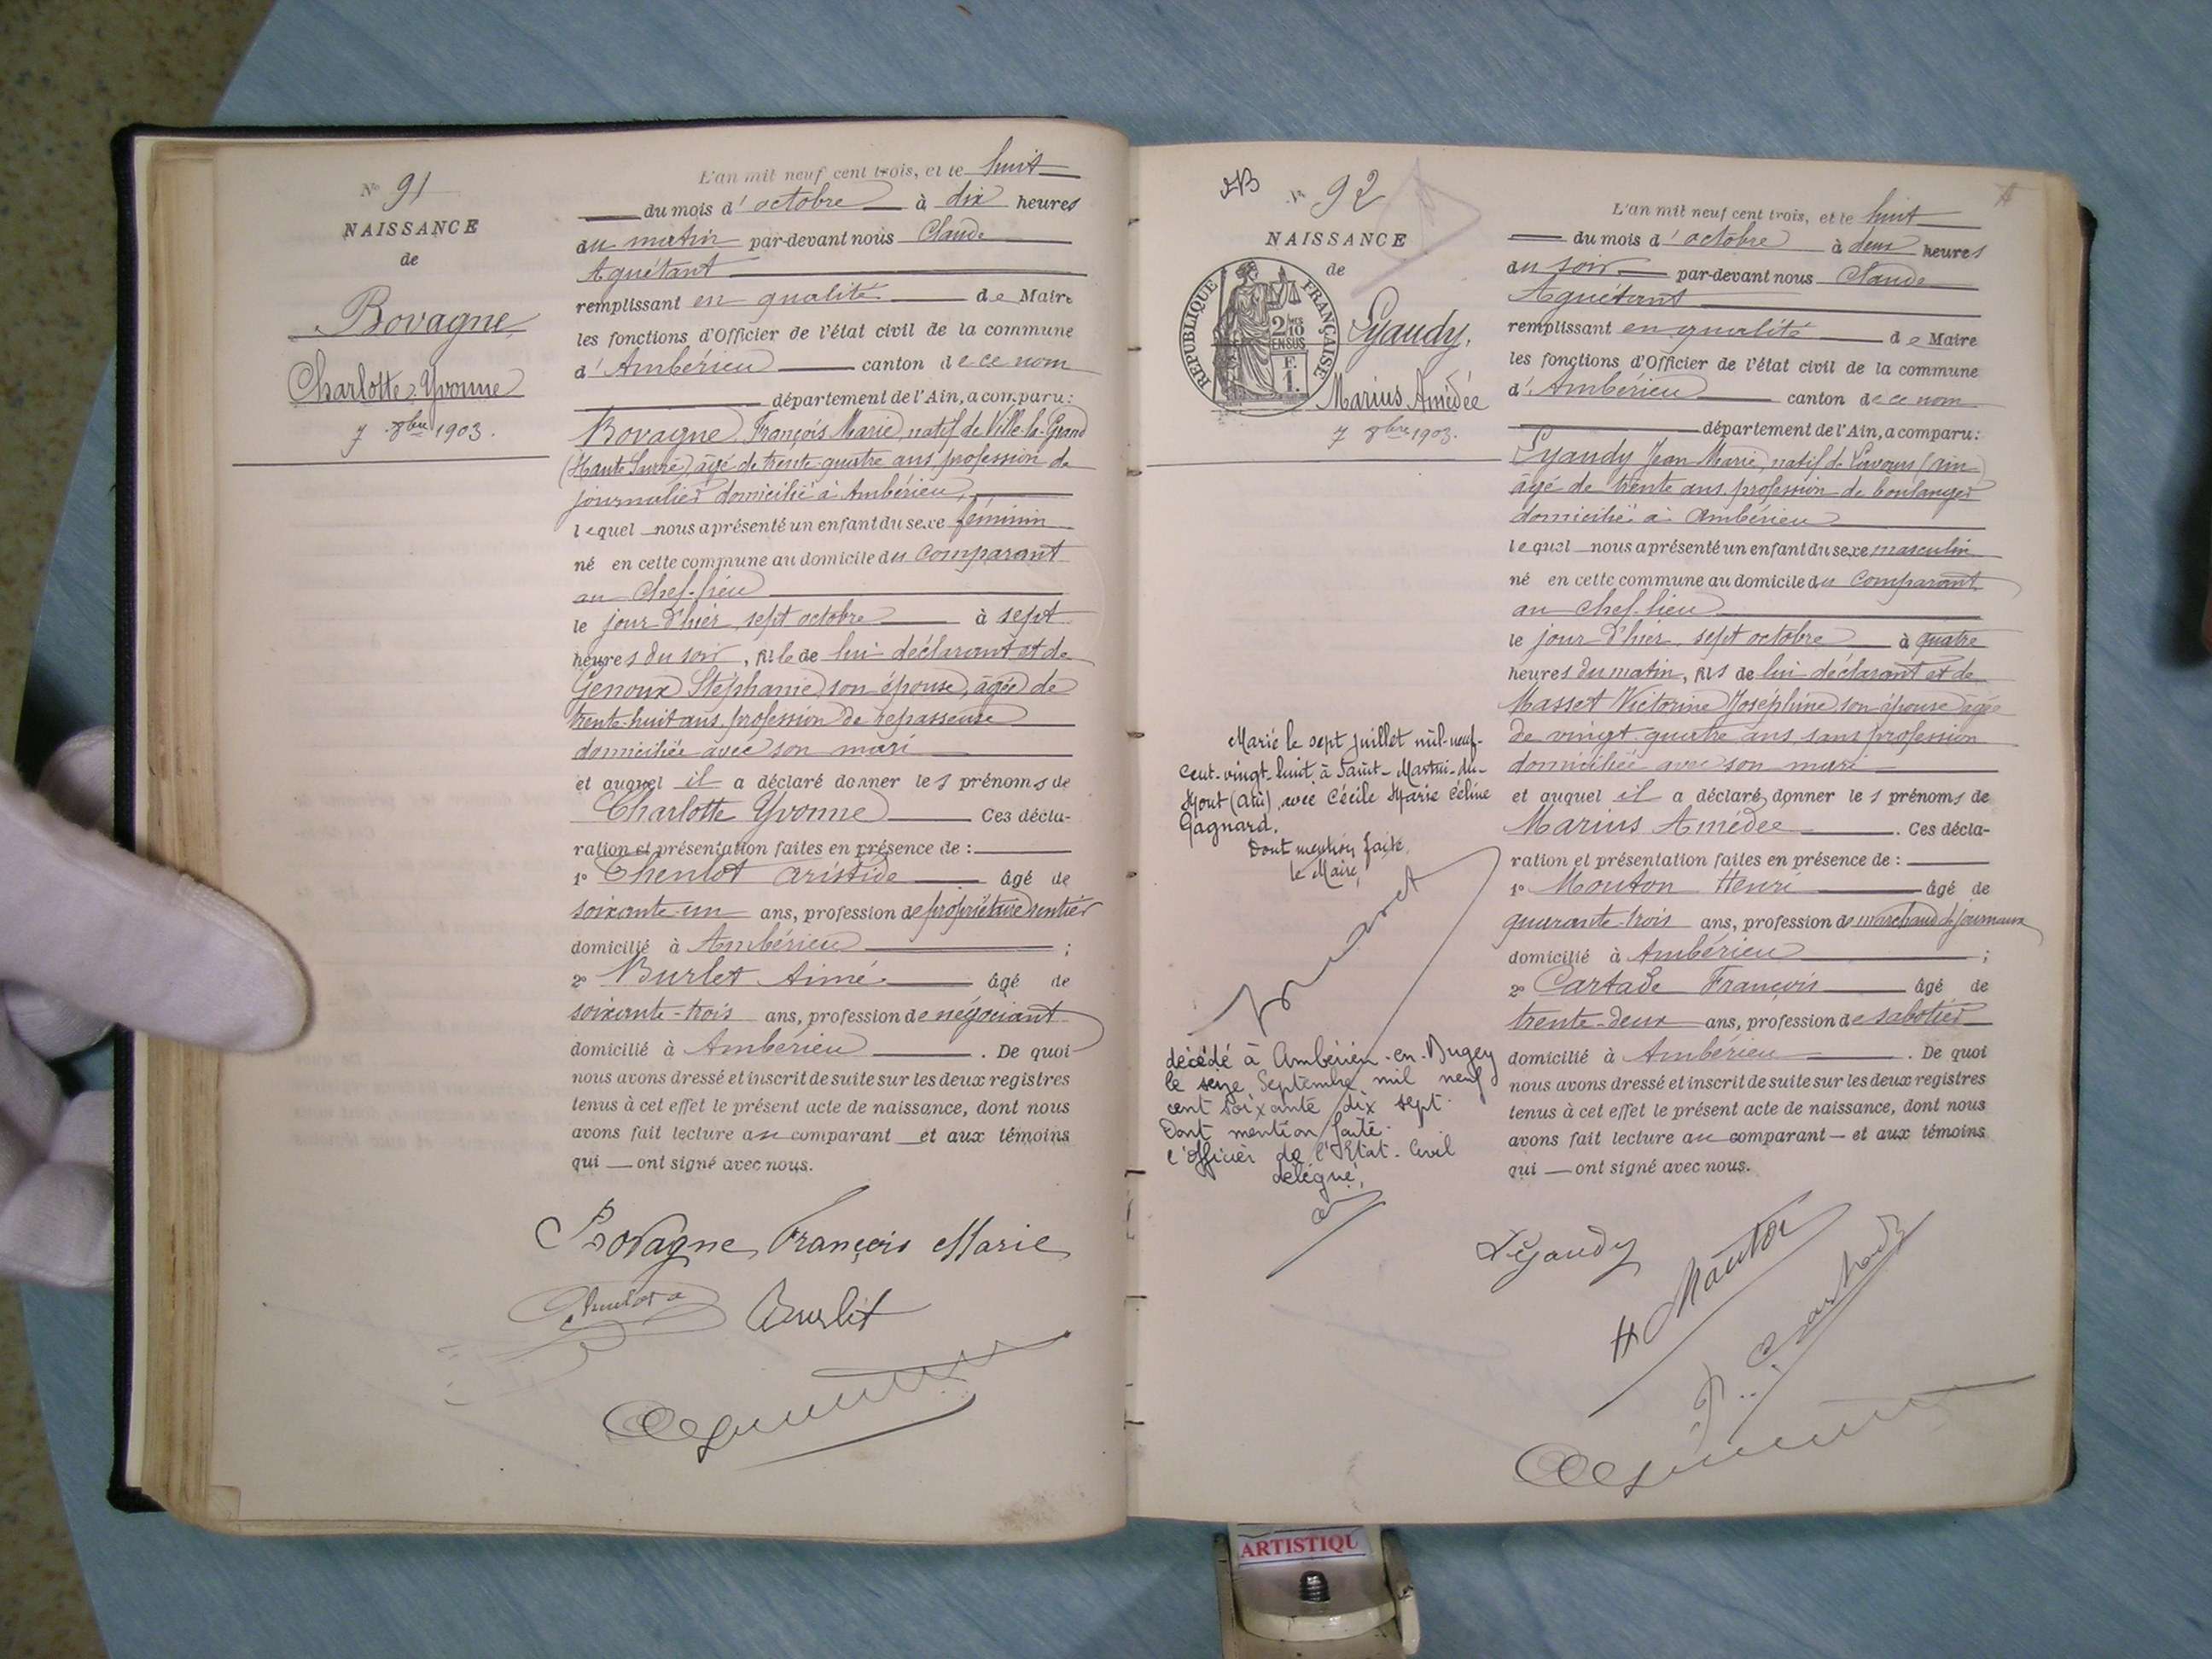 N° 91
NAISSANCE
de
Bovagne
Charlotte Yvonne
7 8bre 1903.
L'an mil neuf cent trois, et le huit
du mois d'octobre à dix heures
du matin par-devant nous Claude
Aguétant
remplissant en qualité de Maire
les fonctions d'Officier de l'état civil de la commune
d'Ambérieu canton de ce nom
département de l'Ain, a comparu:
Bovagne François Marie, natif de Ville-la-Grand
(Haute Savoie) âgé de trente quatre ans profession de
journalier domicilié à Ambérieu,
lequel nous a présenté un enfant du sexe féminin
né en cette commune au domicile du comparant
au Chef-lieu
le jour d'hier sept octobre à sept
heures du soir, fille de lui déclarant et de
Genoux Stéphanie son épouse, âgée de
trente-huit ans, profession de repasseuse
domiciliée avec son mari
et auquel il a déclaré donner les prénoms de
Charlotte Yvonne Ces décla-
ration et présentation faites en présence de :
1° Chenlot Aristide âgé de
soixante-un ans, profession de propriétaire rentier
domicilié à Ambérieu ;
2° Burlet Aimé âgé de
soixante-trois ans, profession de négociant
domicilié à Ambérieu . De quoi
nous avons dressé et inscrit de suite sur les deux registres
tenus à cet effet le présent acte de naissance, dont nous
avons fait lecture au comparant et aux témoins
qui ont signé avec nous.
Bovagne François Marie
Burlet
N° 92
NAISSANCE
de
RÉPUBLIQUE FRANÇAISE
2/10
EN SUS
F.
1.
Lyaudy,
Marius Amédée
7 8bre 1903.
L'an mil neuf cent trois, et le huit
du mois d'octobre à deux heures
du soir par-devant nous Claude
Aguétant
remplissant en qualité de Maire
les fonctions d'Officier de l'état civil de la commune
d'Ambérieu canton de ce nom
département de l'Ain, a comparu:
Lyaudy Jean Marie, natif de (Ain)
âgé de trente ans profession de boulanger
domicilié à Ambérieu
lequel nous a présenté un enfant du sexe masculin
né en cette commune au domicile du comparant
au chef-lieu
le jour d'hier, sept octobre à quatre
heures du matin, fils de lui déclarant et de
Masset Victorine Joséphine son épouse âgée
de vingt quatre ans, sans profession
domiciliée avec son mari
et auquel il a déclaré donner les prénoms de
Marius Amédée . Ces décla-
ration et présentation faites en présence de :
1° Mouton Henri âgé de
quarante-trois ans, profession de marchand de journaux
domicilié à Ambérieu ;
2° Cartade François âgé de
trente-deux ans, profession de sabotier
domicilié à Ambérieu . De quoi
nous avons dressé et inscrit de suite sur les deux registres
tenus à cet effet le présent acte de naissance, dont nous
avons fait lecture au comparant et aux témoins
qui ont signé avec nous.
Marié le sept juillet mil-neuf-
cent-vingt-huit, à Saint-Martin-du-
Mont (Ain), avec Cécile Marie Céline
Gagnard.
Dont mention faite,
le Maire,
décédé à Ambérieu-en-Bugey
le seize Septembre mil neuf
cent soixante dix sept.
Dont mention faite.
l'officier de l'Etat-Civil
délégué,
Lyaudy
H Mouton
ARTISTIQU